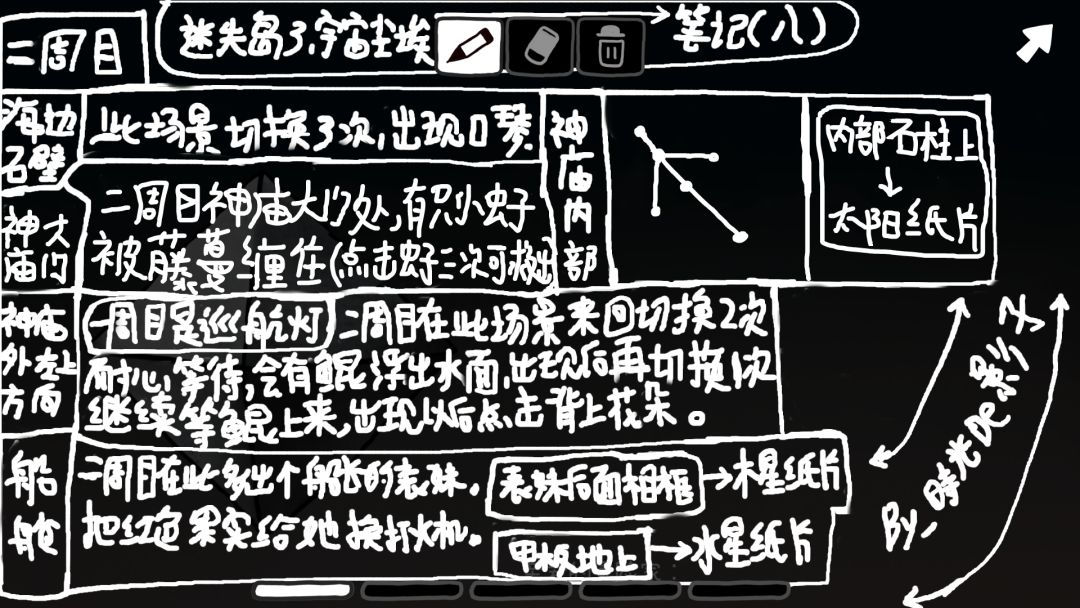 二周目
迷失岛3,宇宙尘埃 → 笔记(八)
海边石壁
此场景切换了3次,出现口琴
神庙大门
二周目神庙大门处,有只小虫子
被藤蔓缠住(点击虫子三次可救出)
神庙内部
内部石柱上
↓
太阳纸片
神庙外左上方向
一周目是巡航灯 二周目在此场景来回切换2次
耐心等待,会有鲲浮出水面,出现后再切换1次
继续等鲲上来,出现以后点击背上花朵。
船舱
二周目在此多出个船长的表妹。
把红色果实给她换打火机。
表妹后面相框→木星纸片
甲板地上→水星纸片
By_時光De影兮